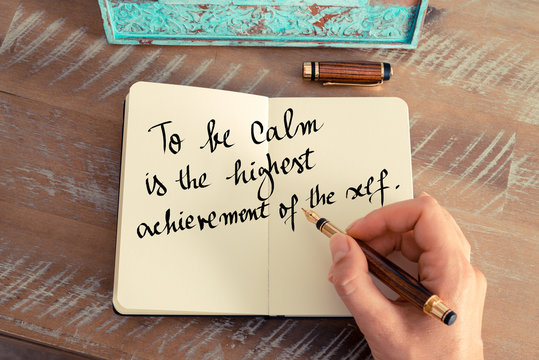 To be calm
is the highest
achievement of the self.